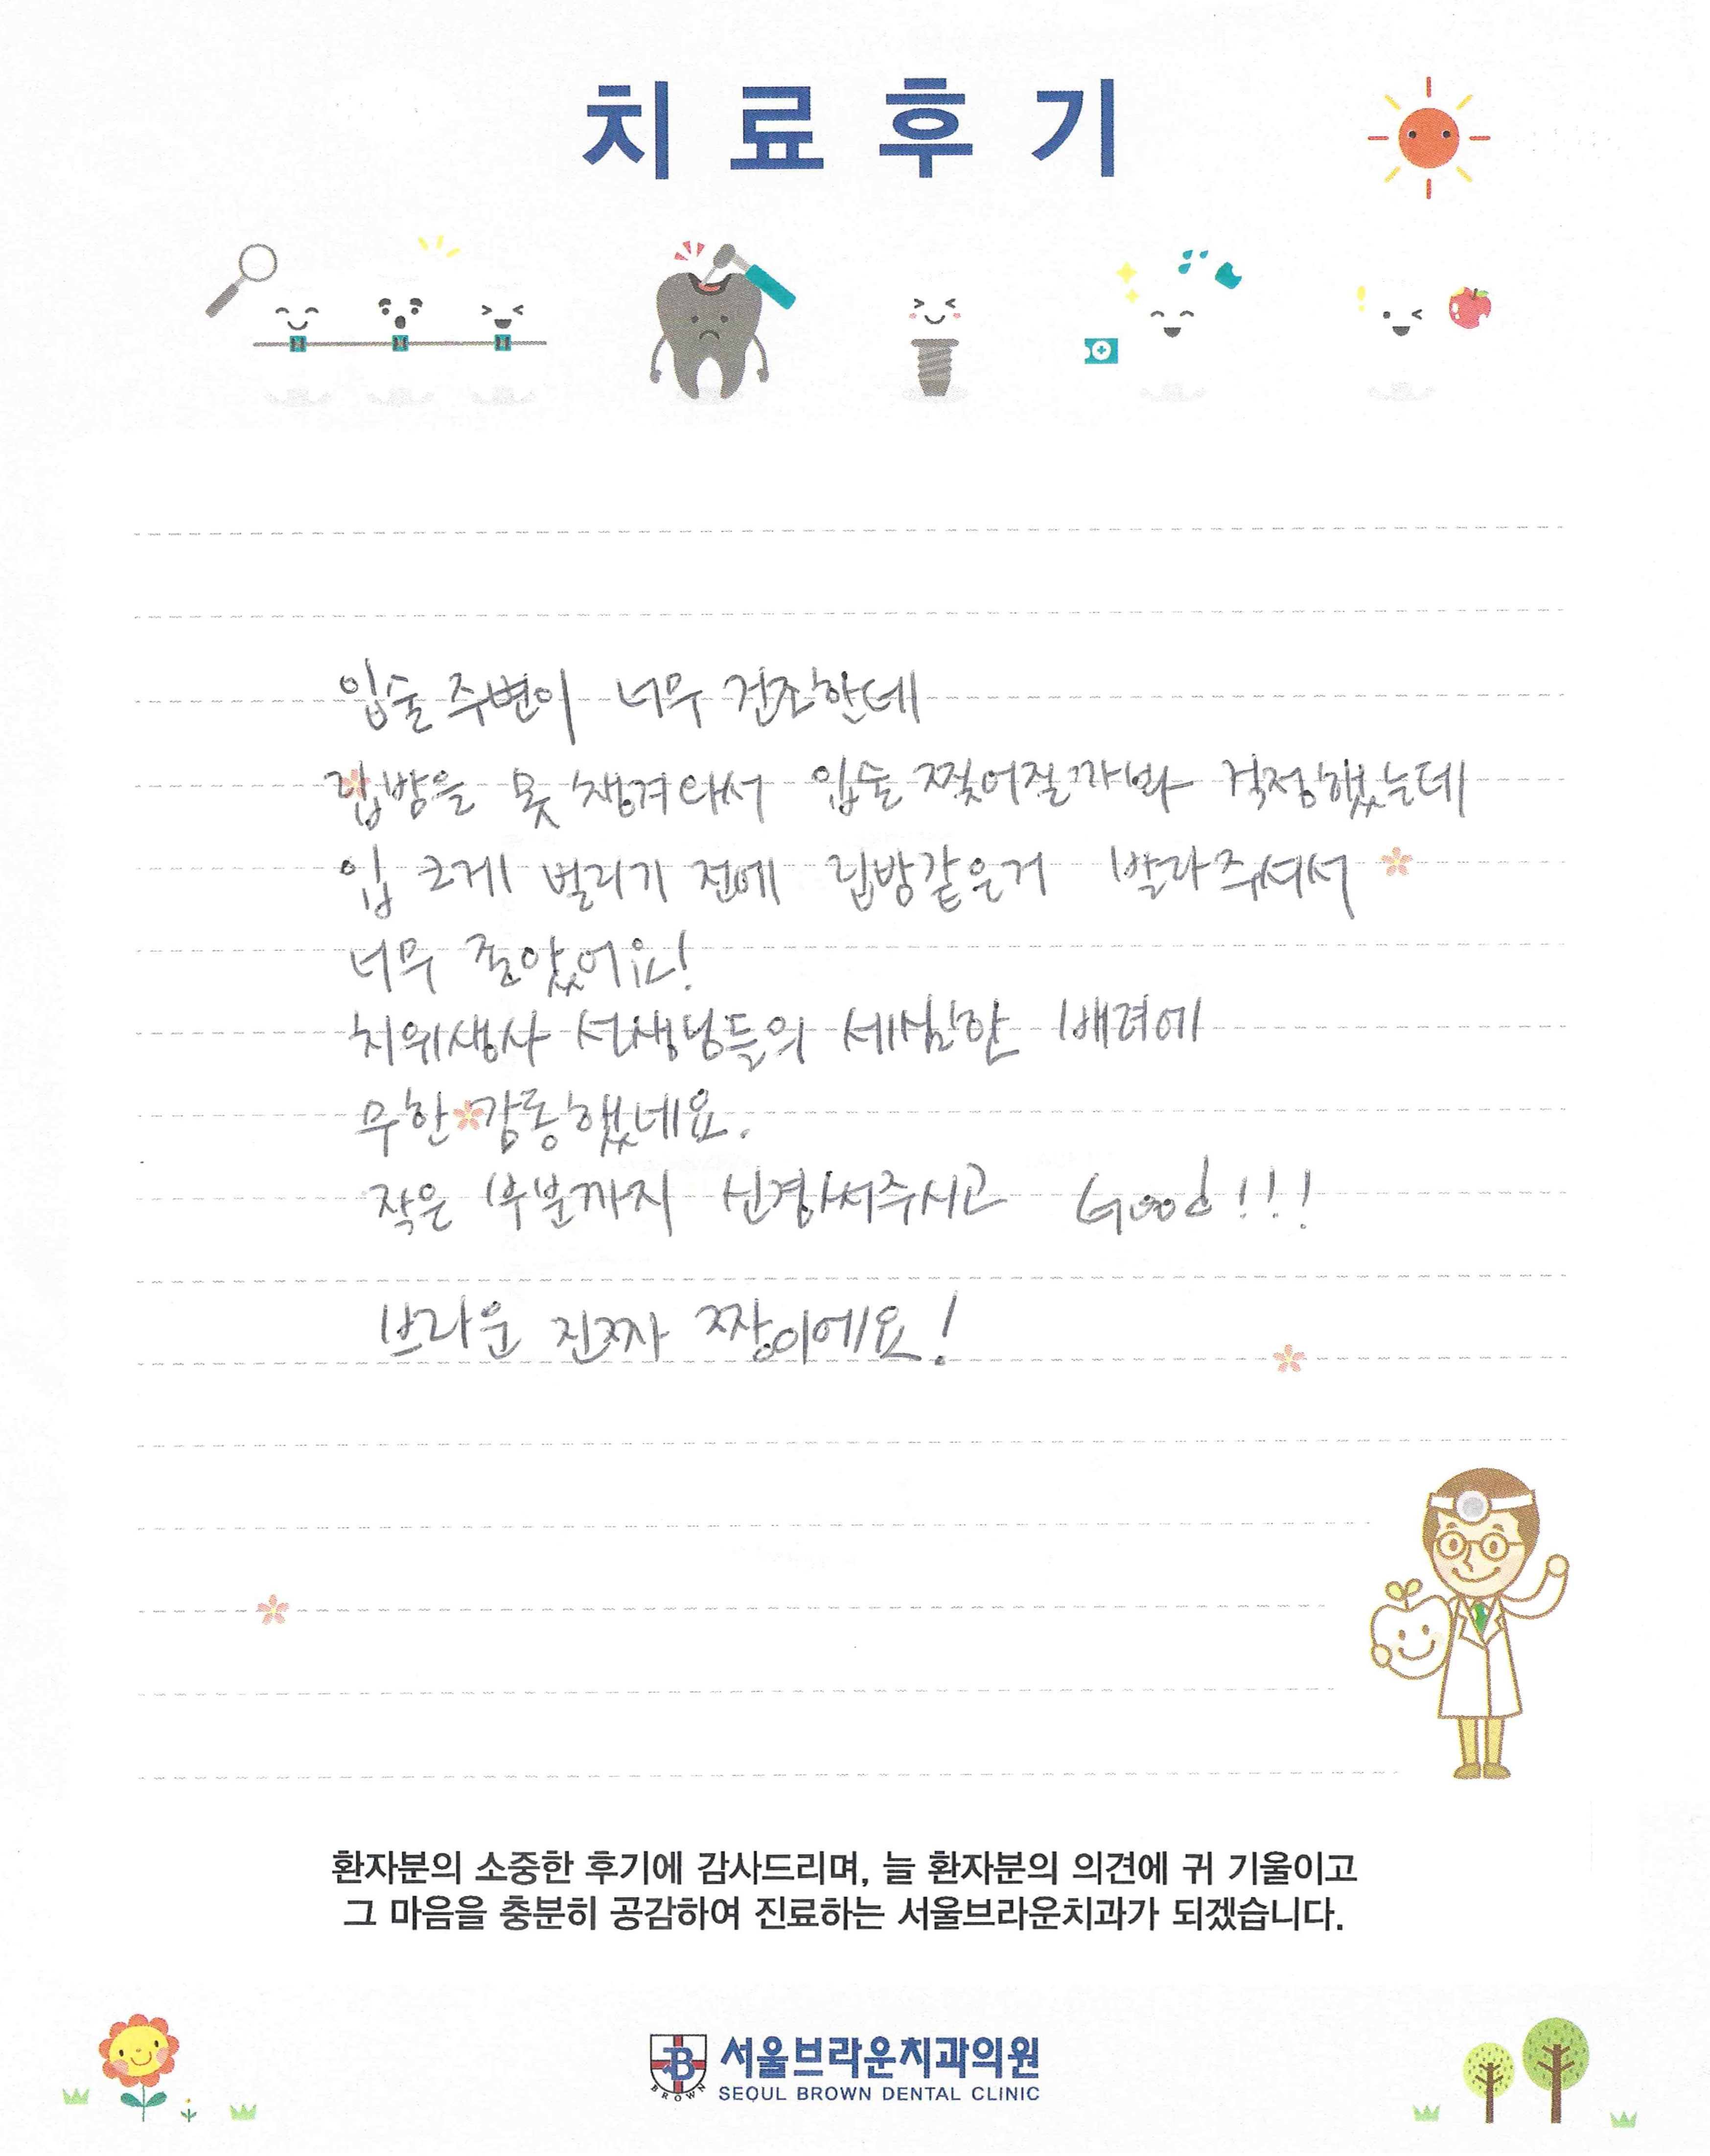 치료후기
입술 주변이 너무 건조한데
립밤을 못 챙겨와서 입술 찢어질까봐 걱정했는데
입 크게 벌리기 전에 립밤같은거 발라주셔서
너무 좋았어요!
치위생사 선생님들의 세심한 배려에
무한 감동했네요.
작은 부분까지 신경써주시고 Good!!!
브라운 진짜 짱이에요!
환자분의 소중한 후기에 감사드리며, 늘 환자분의 의견에 귀 기울이고
그 마음을 충분히 공감하여 진료하는 서울브라운치과가 되겠습니다.
B
BROWN
서울브라운치과의원
SEOUL BROWN DENTAL CLINIC